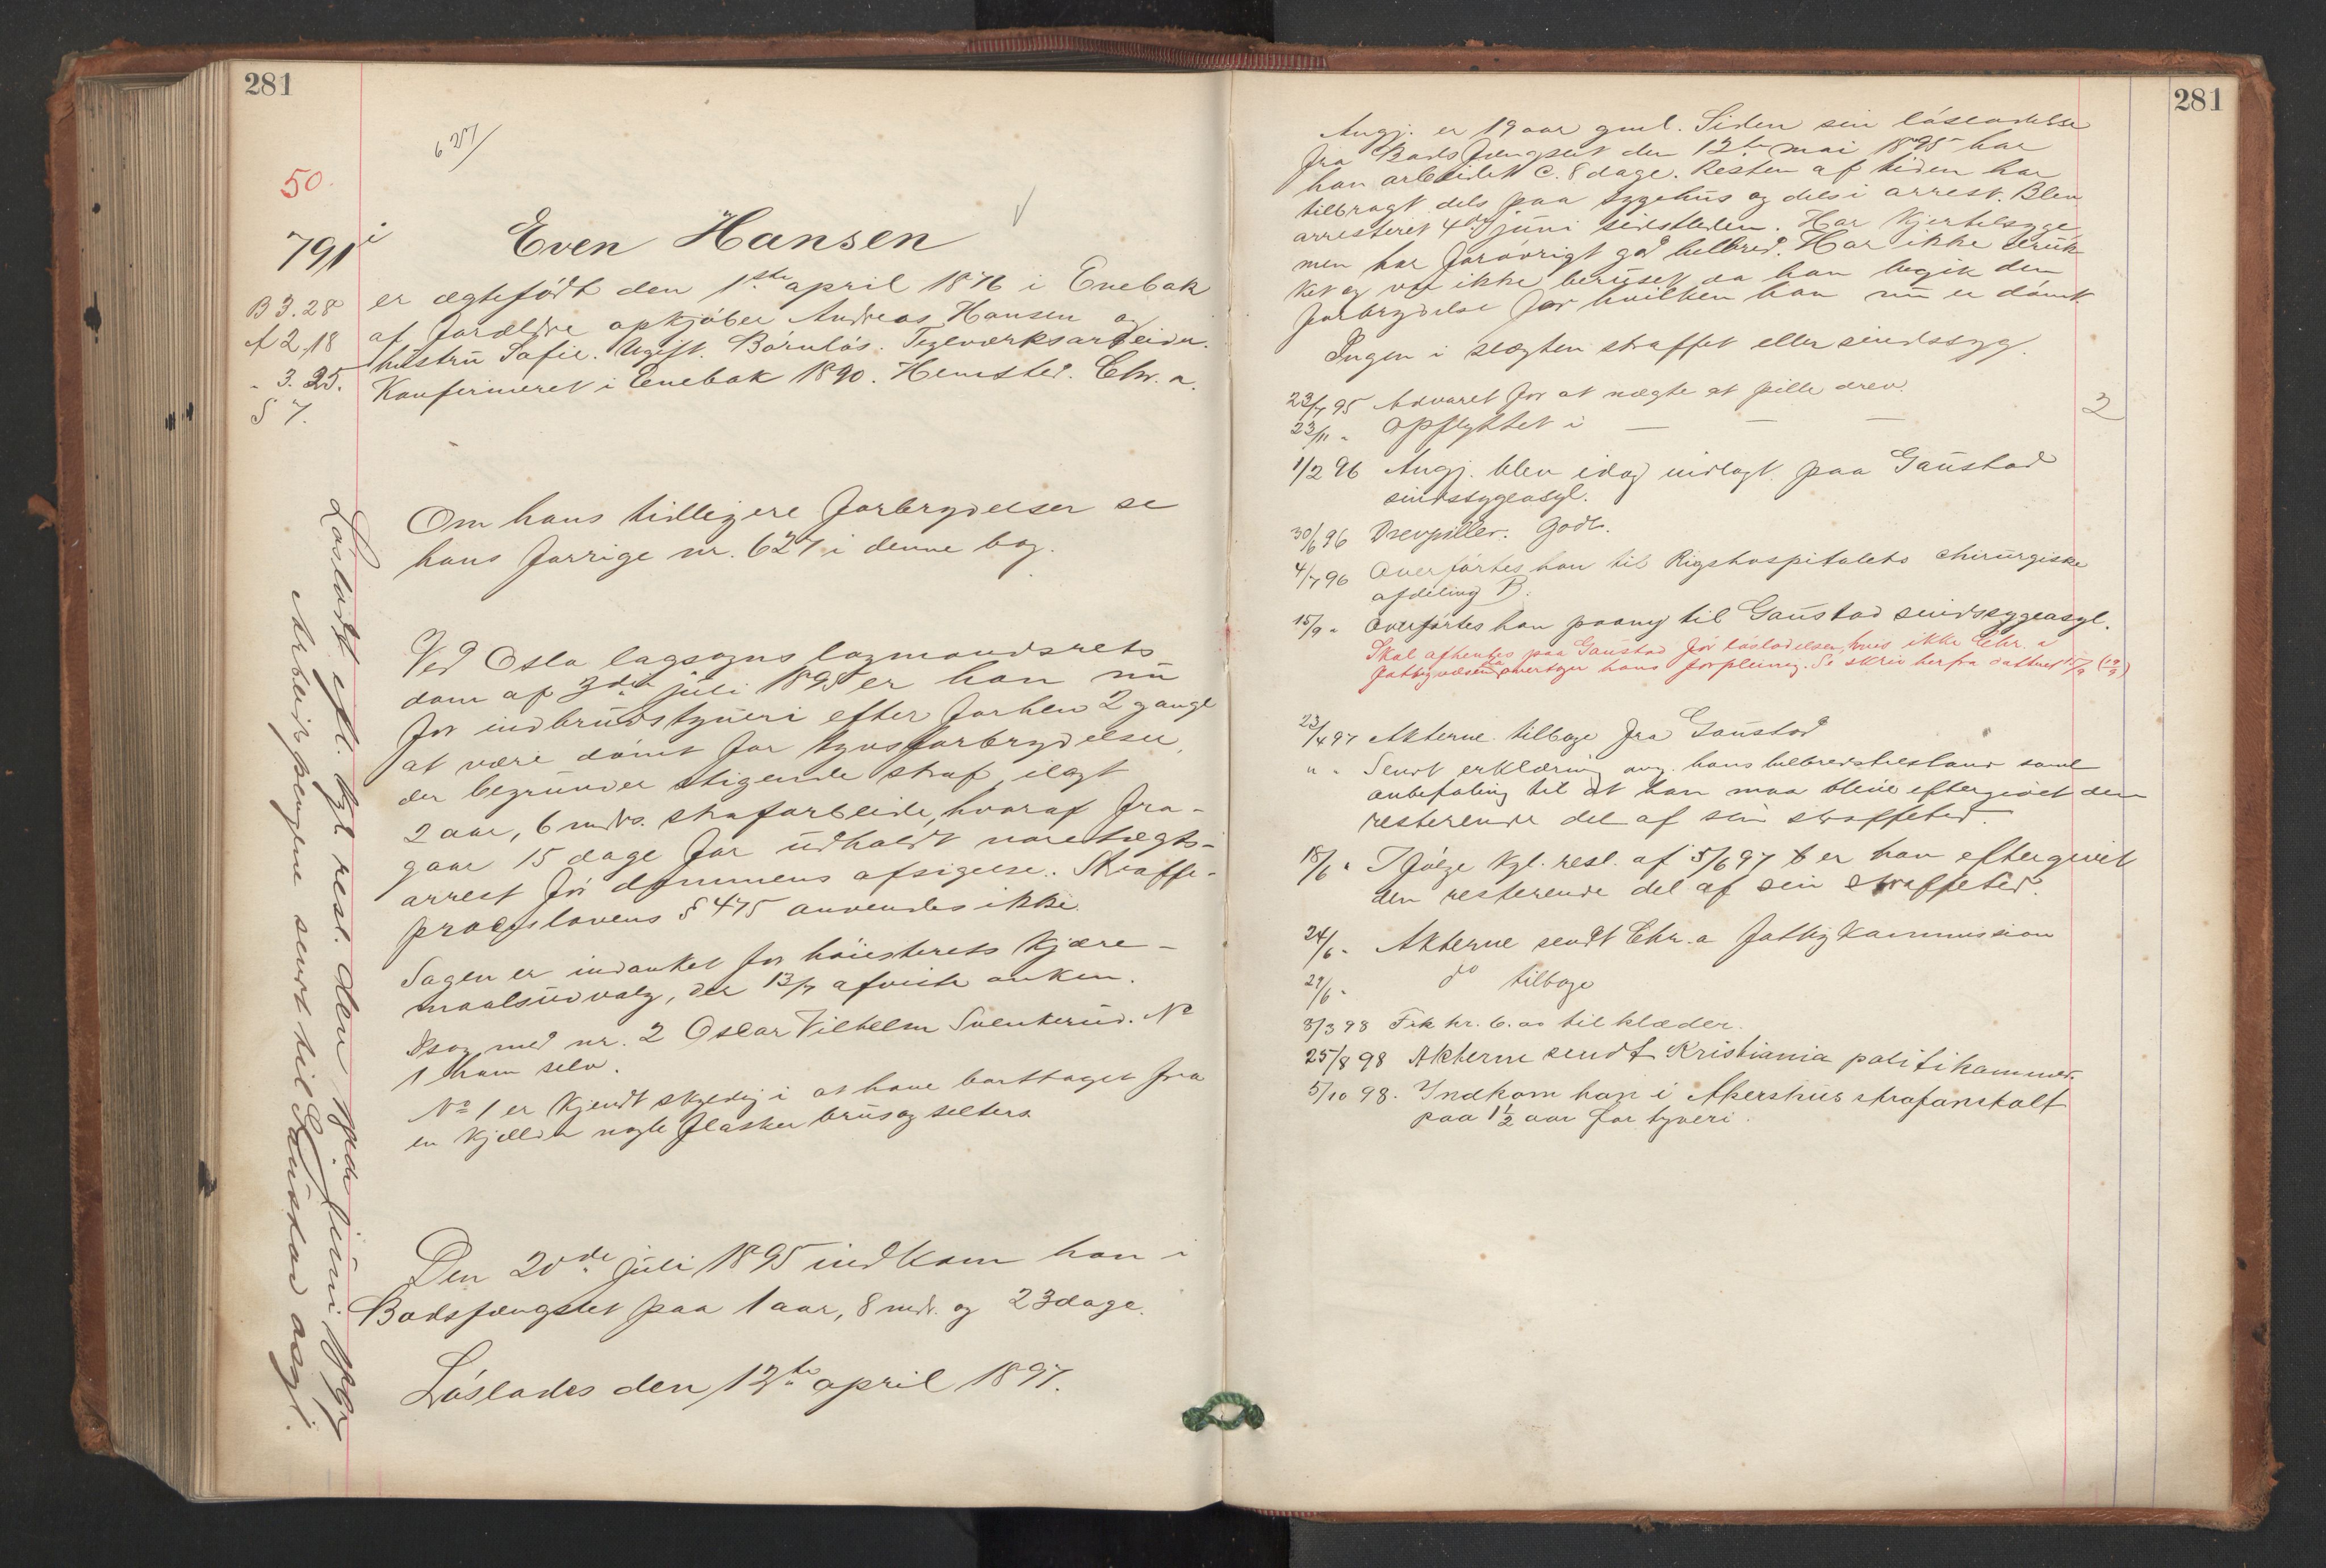 281
627/
50.
791 i
Even Hansen
B 3. 28
A 2. 18
" 3. 25.
S 7.
er ægtefödt den 1ste april 1876 i Enebak
af forældre opkjöber Andreas Hansen og
hustru Sofie. Ugift. Börnlös. Teglværksarbeider.
Konfirmeret i Enebak 1890. Hemsted. Chr.a.
Om hans tidligere forbrydelser se
hans forrige nr. 627 i denne bog.
Ved Oslo lagsogns lagmandsrets
dom af 3die juli 1895 er han nu
for indbrudstyveri efter forhen 2 gange
at være dömt for tyvsforbrydelser,
der begrunder stigende straf, ilagt
2 aar, 6 mdrs. strafarbeide, hvoraf fra-
gaar 15 dage for udholdt varetægts-
arrest för dommens afsigelse. Straffe-
proceslovens § 475 anvendes ikke.
Sagen er indanket for höiesterets kjære-
maalsudvalg, der 13/7 afviste anken.
Dsag med nr. 2 Oscar Vilhelm Svenkerud. No
1 ham selv.
No 1 er kjendt skyldig i at have borttaget fra
en kjelder nogle flasker brus og selters
Den 20de juli 1895 indkom han i
Bodsfængslet paa 1 aar, 8 mdr. og 23 dage.
Löslades den 12te april 1897.
Lösladt efl. kgl. resl. den juni 1897
Arbeidspengene sendt til Gaustad asyl.
281
Angj. er 19 aar gml. Siden sin löslatelse
fra Bodsfængslet den 12te mai 1895 har
han arbeidet c. 8 dage. Resten af tiden har
tilbragt dels paa sygehus og dels i arrest. Blev
arresteret 4de juni sidstleden. Har kjertelsyge
men har forövrigt god helbred. Har ikke druk-
ket og var ikke beruset da han begik den
forbrydelse for hvilken han nu er dömt
Ingen i slægten straffet eller sindssyg.
23/7 95 Advaret for at nægte at pille drev.
2
23/11 " Opflyttet i — — —
1/2 96 Angj. blev idag indlagt paa Gaustad
sindssygeasyl.
30/6 96 Drevpiller. Godt.
4/7 96 Overförtes han til Rigshospitalets chirurgiske
afdeling B.
15/9 " Overförtes han paany til Gaustad sindssygeasyl.
Skal afhentes paa Gaustad för löslatelsen, hvis ikke Chr.a
fattigvæsen overtager hans forpleining. Se skriv herfra dateret 15/9 (19/9)
23/4 97 Akterne tilbage fra Gaustad
" " Sendt erklæring ang. hans helbredstilstand samt
anbefaling til at han maa blive eftergivet den
resterende del af sin straffetid.
18/6 " I fölge kgl. resl. af 5/6 97 er han eftergivet
den resterende del af sin straffetid.
24/6 " Akterne sendt Chr.a Fattigkommission
29/6 " do tilbage
8/3 98 Fik kr. 6.00 til klæder.
25/8 98 Akterne sendt Kristiania politikammer.
5/10 98. Indkom han i Akershus strafanstalt
paa 1 1/2 aar for tyveri.